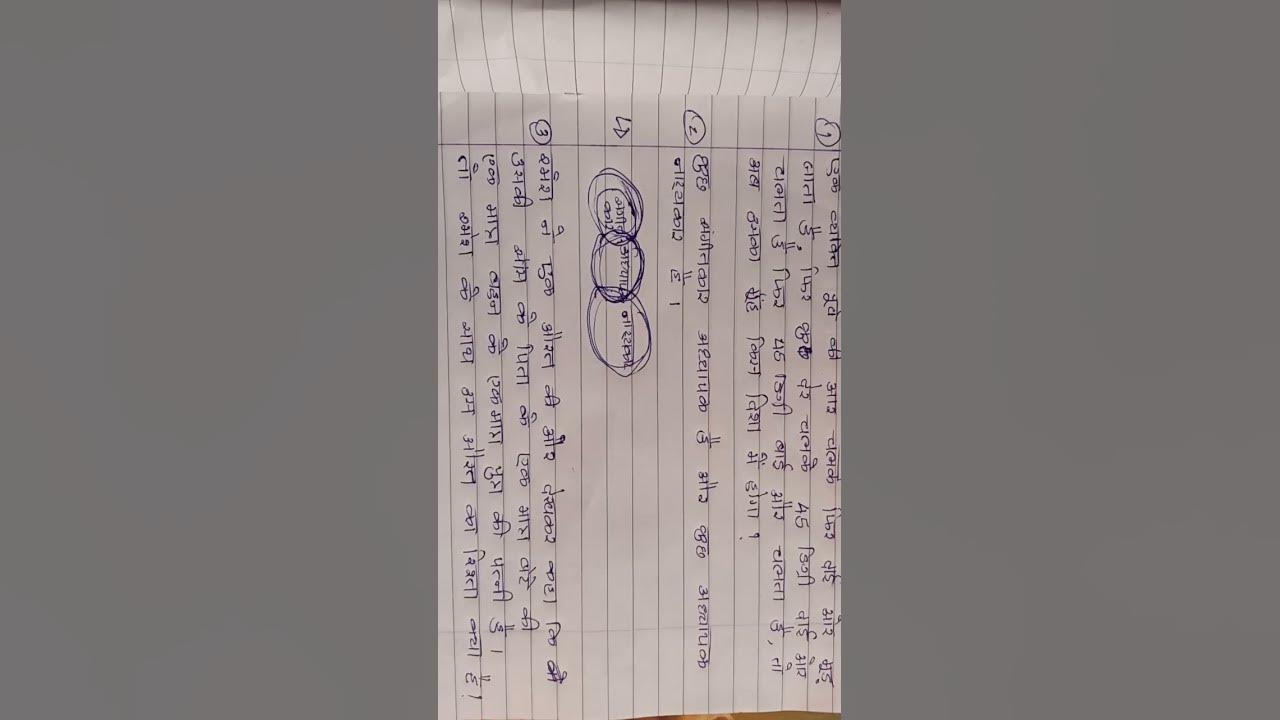 ① एक व्यक्ति पूर्व की ओर चलके फिर दाई ओर मुड़
जाता है, फिर कुछ देर चलके 45 डिग्री दाई ओर
चलता है फिर 45 डिग्री बाई ओर चलता है, तो
अब उसका मुंह किस दिशा में होगा ?
② कुछ संगीतकार अध्यापक है और कुछ अध्यापक
नाट्यकार है ।
↳
संगीतकार अध्यापक नाट्यकार
③ रमेश ने एक औरत की और देखकर कहा कि वो
उसकी माँ के पिता के एक मात्र बेटे की
एक मात्र बहन के एकमात्र पुत्र की पत्नी है ।
तो रमेश के साथ उस औरत का रिश्ता क्या है !